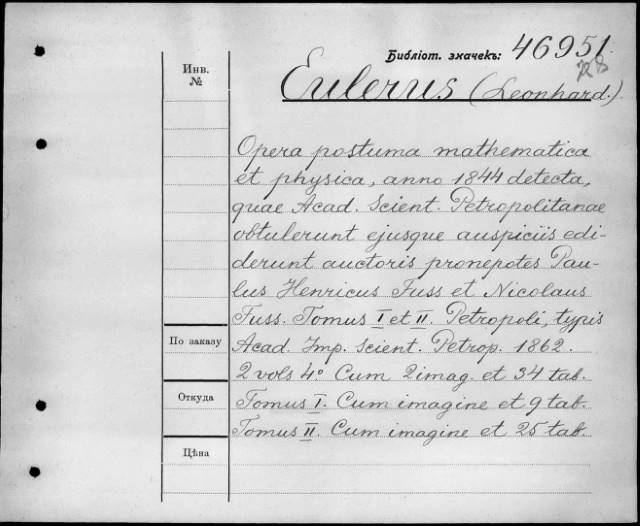 Библіот. значекъ: 46951
R8
Инв.
№
Eulerus (Leonhard.)
Opera postuma mathematica
et physica, anno 1844 detecta,
quae Acad. Scient. Petropolitanae
obtulerunt ejusque auspiciis edi-
derunt auctoris pronepotes Pau-
lus Henricus Fuss et Nicolaus
Fuss. Tomus I et II. Petropoli, typis
По заказу
Acad. Imp. Scient. Petrop. 1862.
2 vols 4° Cum 2 imag. et 34 tab.
Откуда
Tomus I. Cum imagine et 9 tab.
Tomus II. Cum imagine et 25 tab.
Цѣна